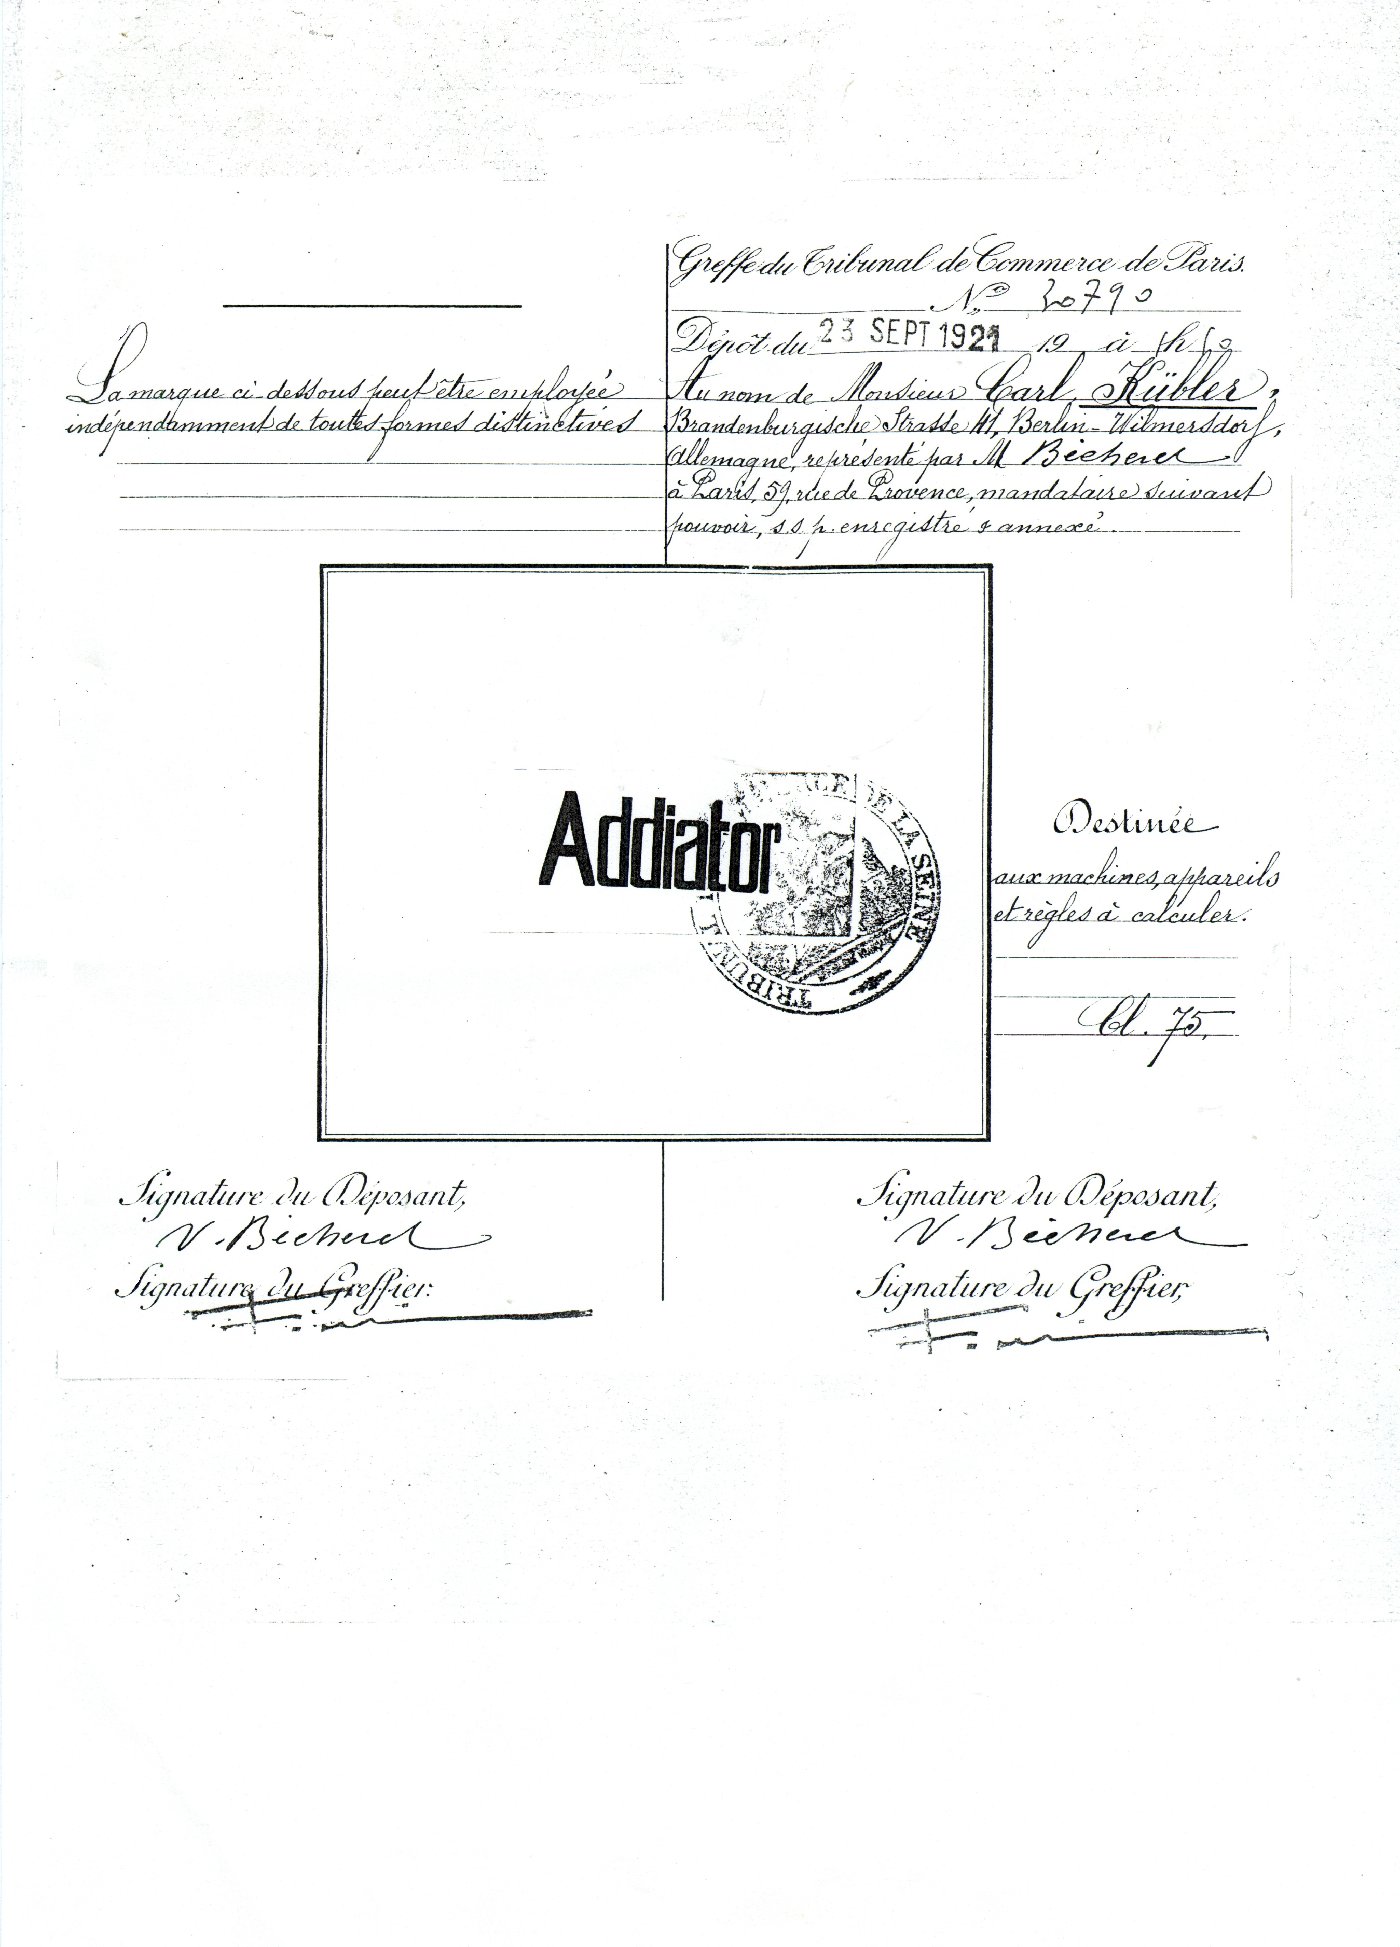 Greffe du Tribunal de Commerce de Paris.
No 20790
Dépôt du 23 SEPT 1921 19 à
La marque ci-dessous peut être employée
indépendamment de toutes formes distinctives
Au nom de Monsieur Carl Kübler,
Brandenburgische Strasse 41, Berlin-Wilmersdorf,
Allemagne, représenté par M Bécherel
à Paris, 59, rue de Provence, mandataire suivant
pouvoir, s.s.p. enregistré & annexé.
Addiator
DE LA SEINE
TRIBUN
Destinée
aux machines, appareils
et règles à calculer.
Cl. 75.
Signature du Déposant,
V. Bécherel
Signature du Greffier:
Signature du Déposant,
V. Bécherel
Signature du Greffier,